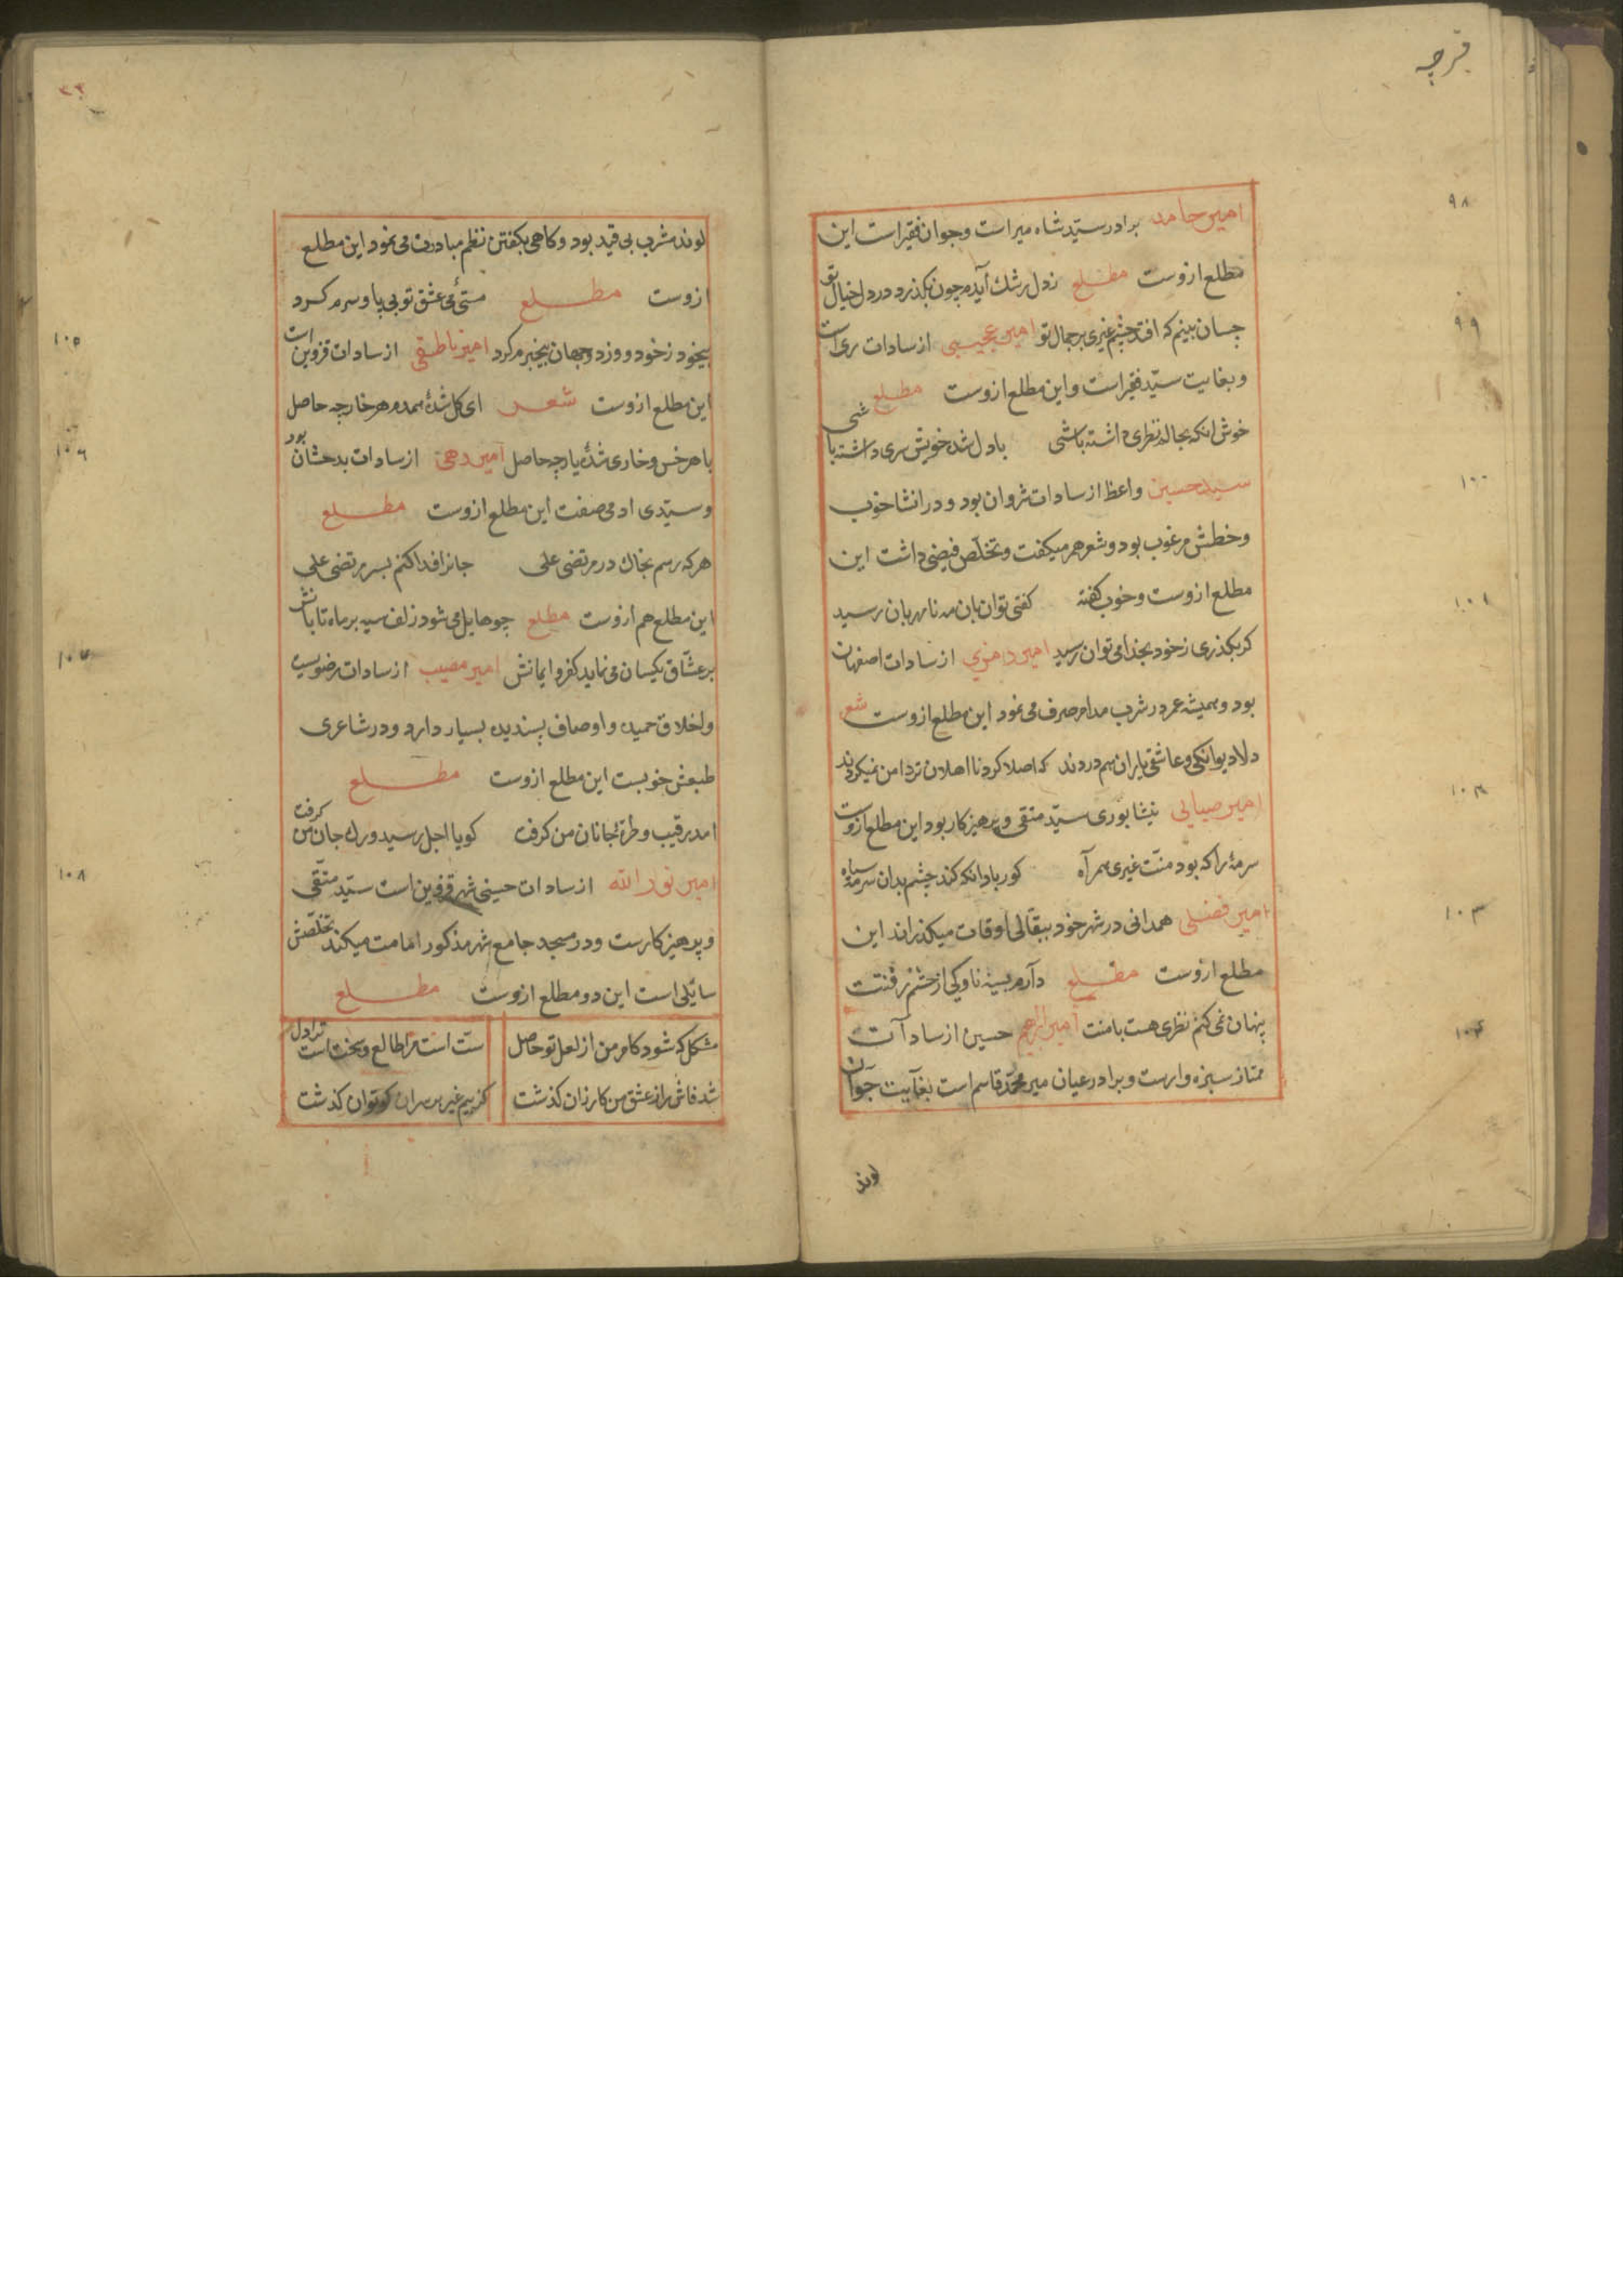 قزجه
٩٨
امیر حامد برادر سیّد شاه میر است و جوان فقیر است این
مطلع ازوست مطلع ز دل رشك آیدم چون بکذرد در دل خیال تو
٩٩
چسان بینم که افتد چشم غیری بر جمال تو امیر عجیبی از سادات ری است
و بغایت سیّد فقیر است و این مطلع ازوست مطلع
خوش انکه بحالم نظری داشته باشی با دل شده خویش سری داشته باشی
١٠٠
سید حسین واعظ از سادات شروان بود و در انشا خوب
و خطش مرغوب بود و شعر هم میکفت و تخلّص فیضی داشت این
مطلع ازوست و خوب کفته کفتی توان بان مه نامهربان رسید
١٠١
کر بکذری ز خود بخدا می توان رسید امیر رموزی از سادات اصفهان
بود و همیشه عمر در شرب مدام صرف می نمود این مطلع ازوست شعر
دلا دیوانکی و عاشقی یاران هم دردند که اصلا کرد نااهلان تردامن نمیکردند
١٠٢
امیر صبایی نیشابوری سیّد متقی و پرهیزکار بود این مطلع ازوست
سرمهٔ را که بود منّت غیری همراه کور بادا انکه کند چشم بدان سرمه سیاه
١٠٣
امیر فضلی همدانی در شهر خود ببقّالی اوقات میکذراند این
مطلع ازوست مطلع دارم بسینه ناوکی از چشم پر فتنت
١٠٤
پنهان نمی کنم نظری هست با منت امیر ابراهیم حسین از سادات
ممتاز سبزه وارست و برادر عیان میر محمّد قاسم است بغایت جوان
لوند
٣٣
لوند مشرب بی قید بود و کاهی بکفتن نظم مبادرت می نمود این مطلع
ازوست مطلع مستیٔ می عشق تو بی پا و سرم کرد
١٠٥
بیخود ز خود و وز دو جهان بیخبرم کرد امیر ناطقی از سادات قزوین است
این مطلع ازوست شعر ای کل شدهٔ همدم هر خار چه حاصل
١٠٦
با هر خس و خاری شدهٔ یار چه حاصل امیر رهی از سادات بدخشان بود
و سیّدی ادمی صفت این مطلع ازوست مطلع
هر که رسم بخاك در مرتضی علی جانرا فدا کنم بسر مرتضی علی
این مطلع هم ازوست مطلع چو حایل می شود زلف سیه بر ماه تابانش
١٠٧
بر عشّاق یکسان می نماید کفر و ایمانش امیر مصیب از سادات رضویست
و اخلاق حمیده و اوصاف پسندیده بسیار دارد و در شاعری
طبعش خوبست این مطلع ازوست مطلع
امد رقیب و طرهٔ جانان من کرفت کویا اجل رسید و رك جان من کرفت
١٠٨
امیر نور الله از سادات حسینی شهر قزوین است سیّد متّقی
و پرهیزکارست و در مسجد جامع شهر مذکور امامت میکند تخلّصش
سایلی است این دو مطلع ازوست مطلع
مشکل که شود کام من از لعل تو حاصل سست است مرا طالع و سخت است ترا دل
شد فاش راز عشق من کار زان کذشت کز بیم غیر بر سر ان کو توان کذشت